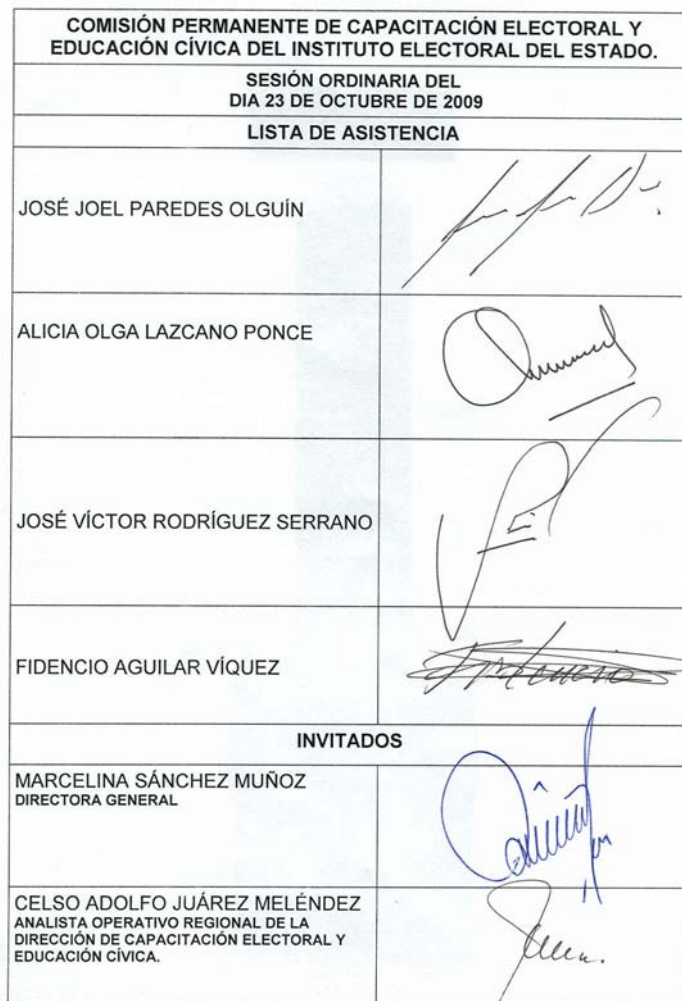 COMISIÓN PERMANENTE DE CAPACITACIÓN ELECTORAL Y
EDUCACIÓN CÍVICA DEL INSTITUTO ELECTORAL DEL ESTADO.
SESIÓN ORDINARIA DEL
DIA 23 DE OCTUBRE DE 2009
LISTA DE ASISTENCIA
JOSÉ JOEL PAREDES OLGUÍN
ALICIA OLGA LAZCANO PONCE
JOSÉ VÍCTOR RODRÍGUEZ SERRANO
FIDENCIO AGUILAR VÍQUEZ
INVITADOS
MARCELINA SÁNCHEZ MUÑOZ
DIRECTORA GENERAL
CELSO ADOLFO JUÁREZ MELÉNDEZ
ANALISTA OPERATIVO REGIONAL DE LA
DIRECCIÓN DE CAPACITACIÓN ELECTORAL Y
EDUCACIÓN CÍVICA.